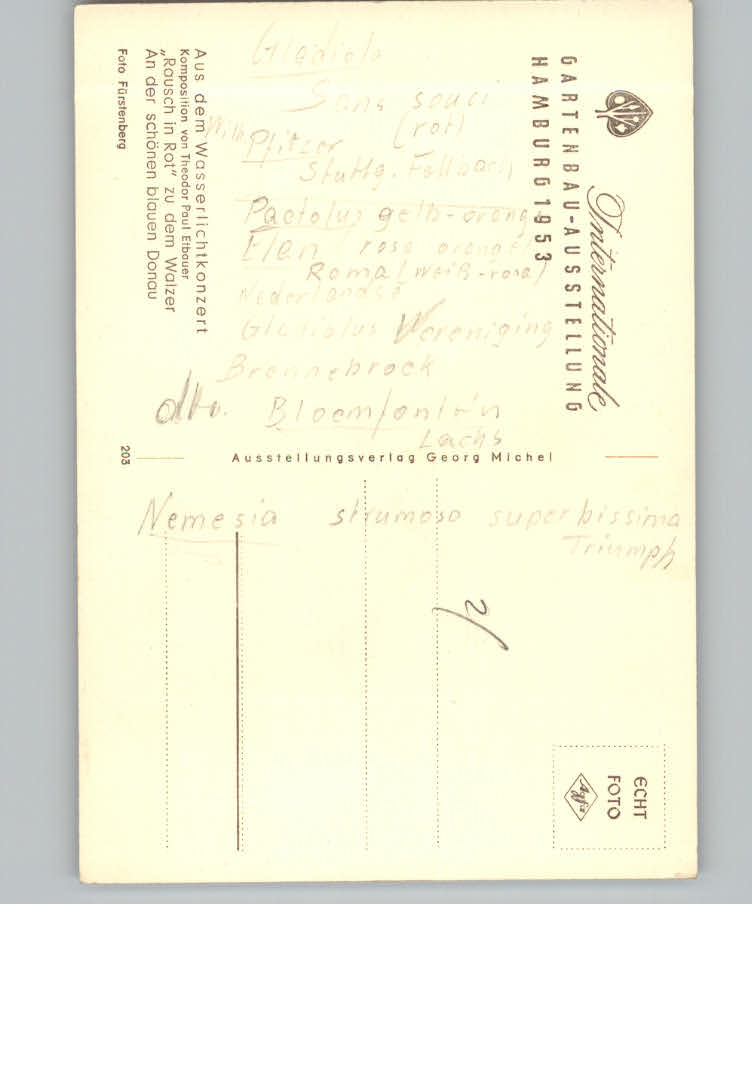 Internationale
GARTENBAU-AUSSTELLUNG
HAMBURG 1953
Aus dem Wasserlichtkonzert
Komposition von Theodor Paul Etbauer
„Rausch in Rot" zu dem Walzer
An der schönen blauen Donau
Foto Fürstenberg
203
Ausstellungsverlag Georg Michel
ECHT
FOTO
Agfa
Gladiole
Sans souci
(rot)
Wilh. Pfitzer
Stuttg. Fellbach
Pactolus gelb-orange
Elan rosa orange
Roma (weiß-rosa)
Nederlandse
Gladiolus Vereniging
Brennebrock
dto. Bloemfontein
Lachs
Nemesia strumosa superbissima
Triumph
2/